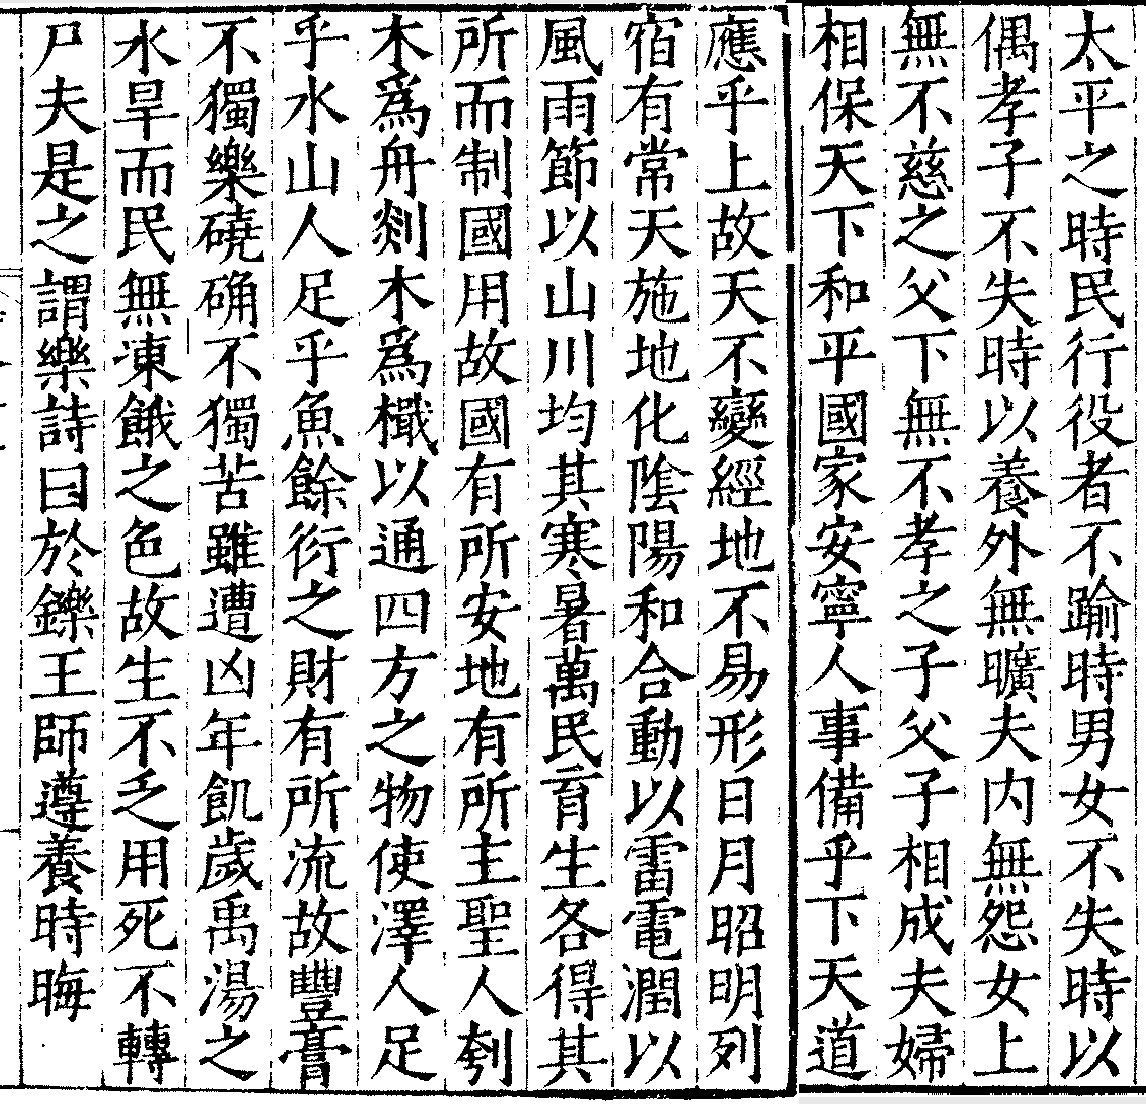 太平之時民行役者不踰時男女不失時以
偶孝子不失時以養外無曠夫内無怨女上
無不慈之父下無不孝之子父子相成夫婦
相保天下和平國家安寧人事備乎下天道
應乎上故天不變經地不易形日月昭明列
宿有常天施地化陰陽和合動以雷電潤以
風雨節以山川均其寒暑萬民育生各得其
所而制國用故國有所安地有所主聖人刳
木爲舟剡木爲檝以通四方之物使澤人足
乎水山人足乎魚餘衍之財有所流故豐膏
不獨樂磽确不獨苦雖遭凶年飢歲禹湯之
水旱而民無凍餓之色故生不乏用死不轉
尸夫是之謂樂詩曰於鑠王師遵養時晦